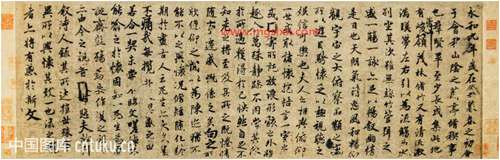 永和九年歲在癸丑暮春之初會
于會稽山陰之蘭亭脩稧事
也群賢畢至少長咸集此地
有崇山峻領茂林脩竹又有清流激
湍暎帶左右引以為流觴曲水
列坐其次雖無絲竹管弦之
盛一觴一詠亦足以暢敘幽情
是日也天朗氣清惠風和暢仰
觀宇宙之大俯察品類之盛
所以遊目騁懷足以極視聽之
娛信可樂也夫人之相與俯仰
一世或取諸懷抱悟言一室之內
或因寄所託放浪形骸之外雖
趣舍萬殊靜躁不同當其欣
於所遇暫得於己怏然自足不
知老之將至及其所之既惓情
隨事遷感慨係之矣向之所欣
俛仰之閒以為陳跡猶不
能不以之興懷況脩短隨化終
期於盡古人云死生亦大矣豈
不痛哉每攬昔人興感之由
若合一契未嘗不臨文嗟悼不
能喻之於懷固知一死生為虛
誕齊彭殤為妄作後之視今
亦由今之視昔悲夫故列
敘時人錄其所述雖世殊事
異所以興懷其致一也後之攬
者亦將有感於斯文
中国图库 cntuku.cn